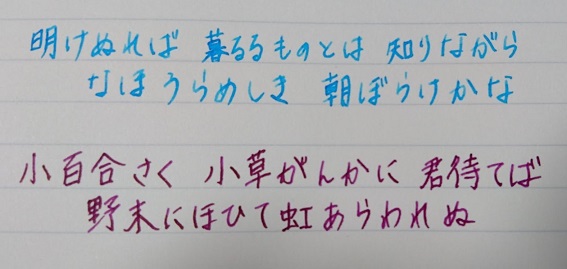 明けぬれば 暮るるものとは 知りながら
なほうらめしき 朝ぼらけかな
小百合さく 小草がんかに 君待てば
野末にほひて 虹あらわれぬ